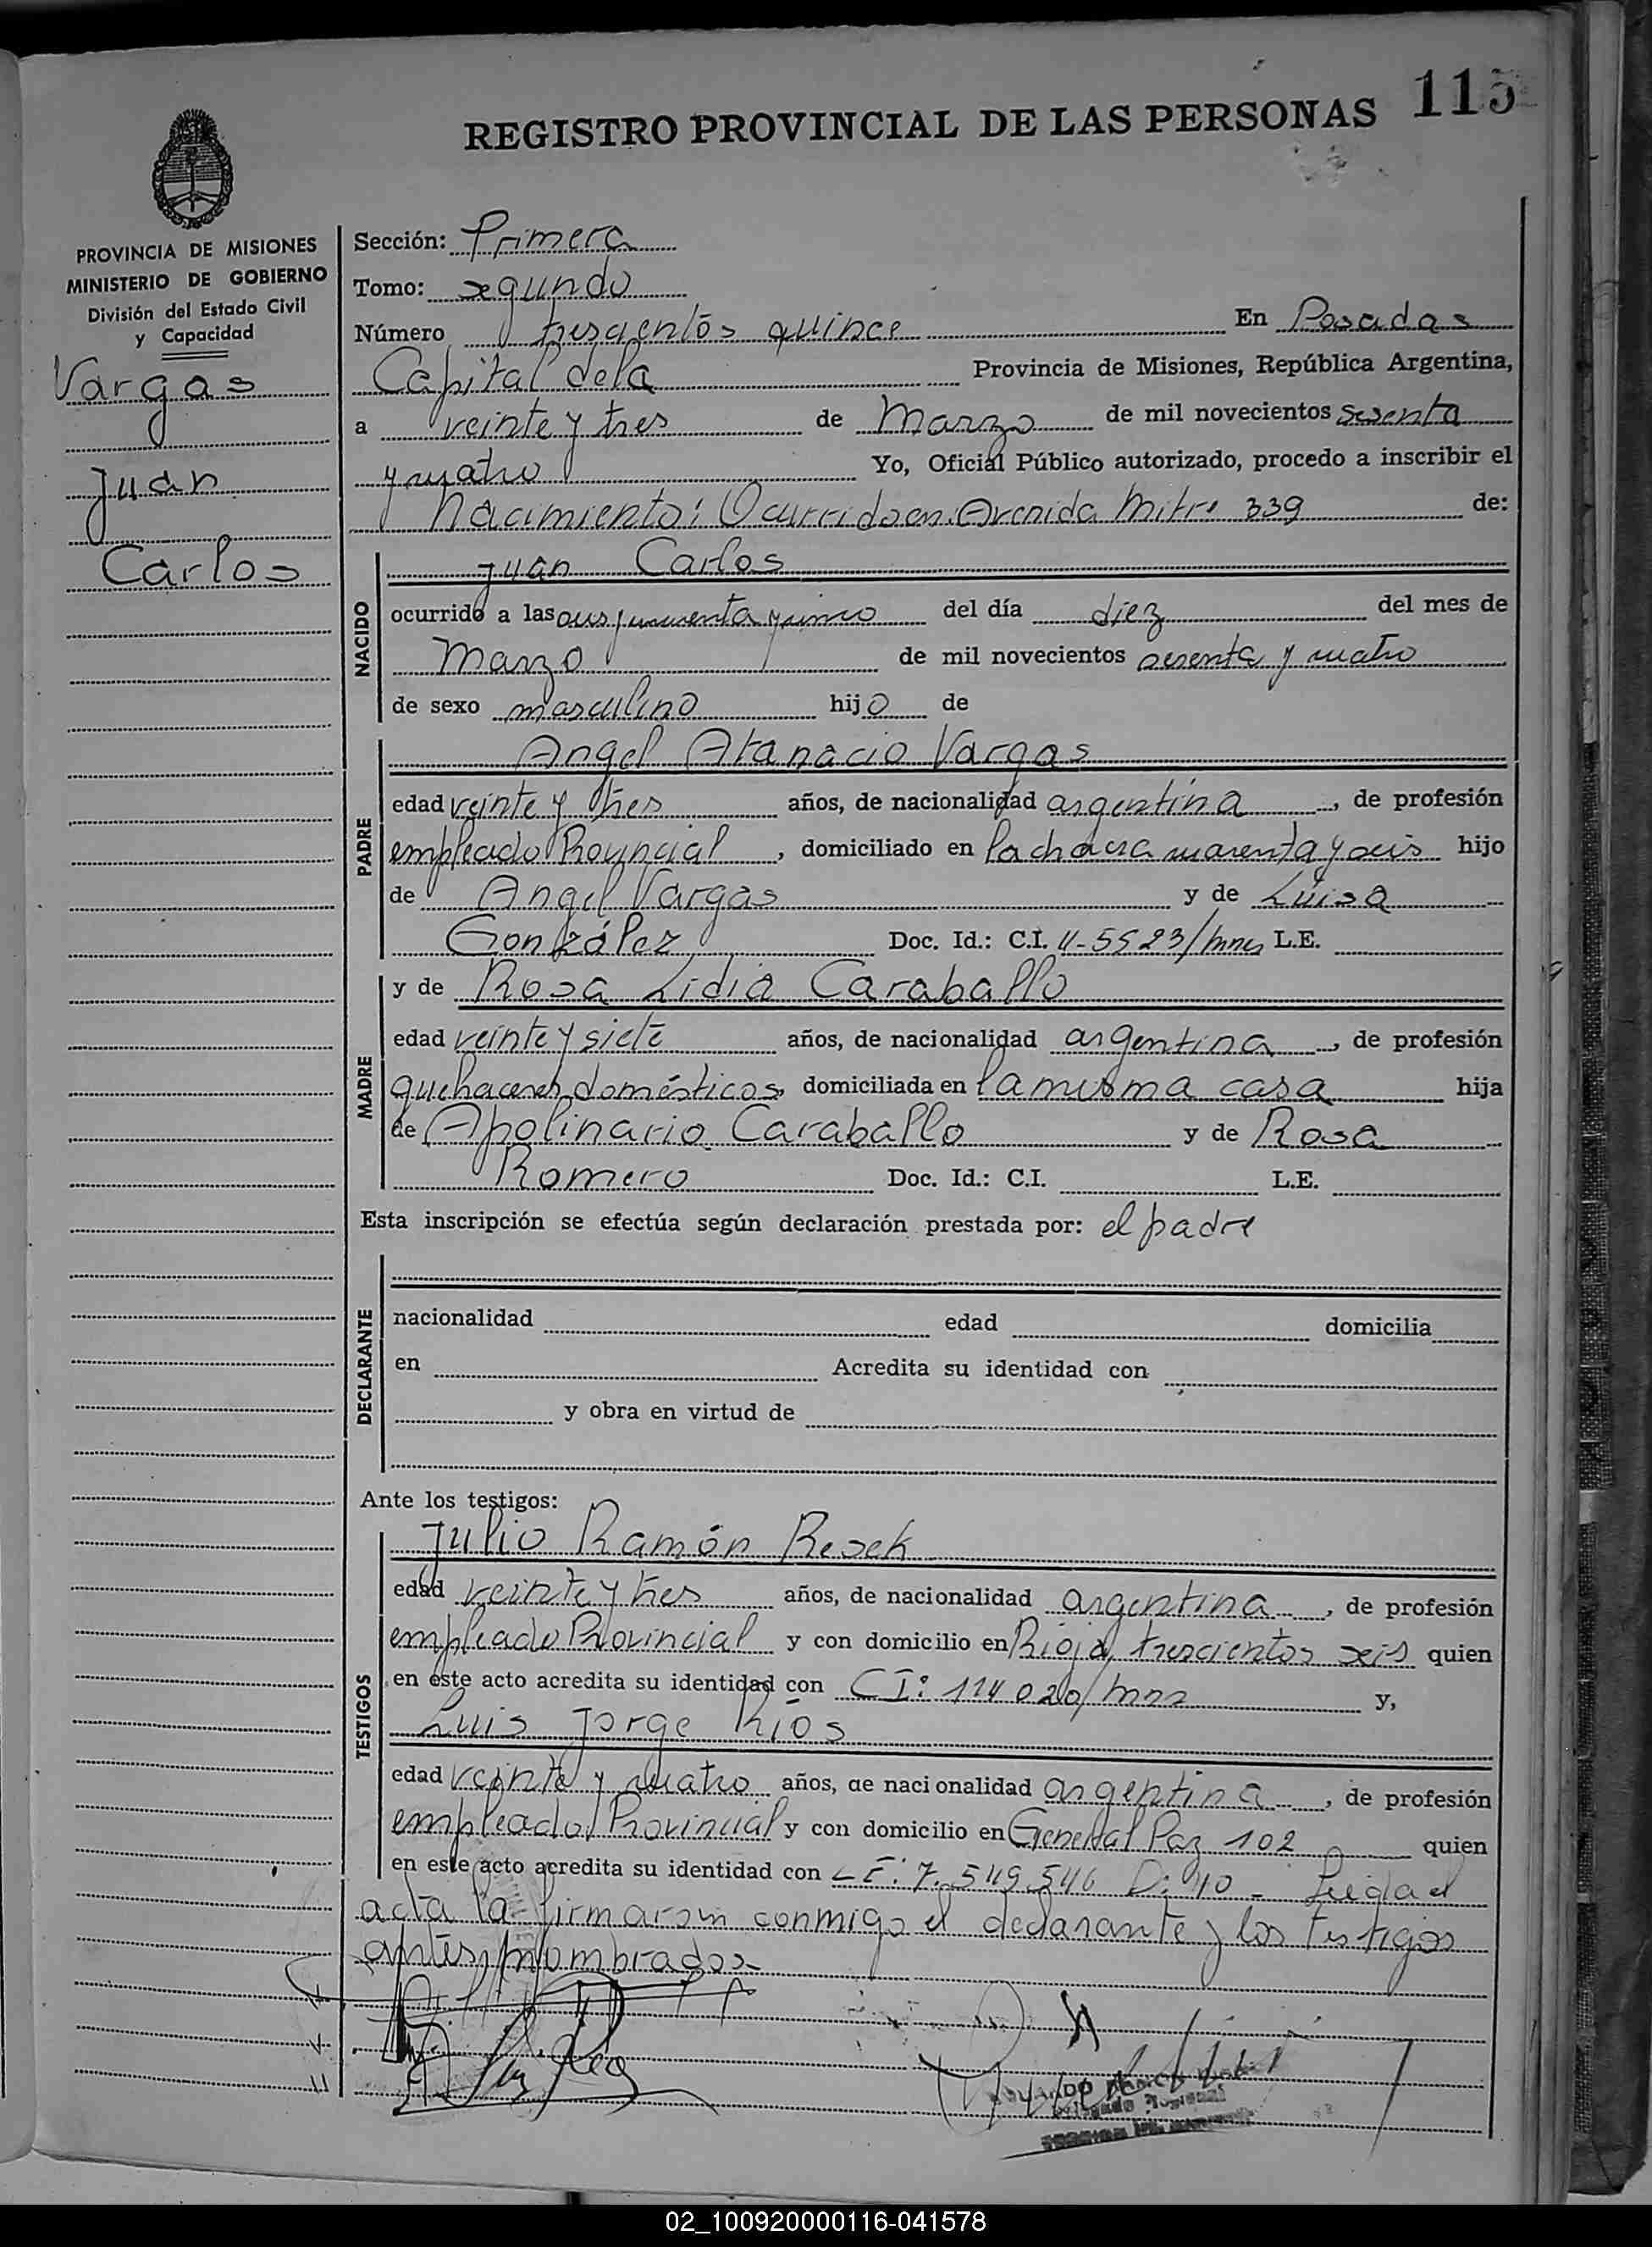 REGISTRO PROVINCIAL DE LAS PERSONAS 115
PROVINCIA DE MISIONES
MINISTERIO DE GOBIERNO
División del Estado Civil
y Capacidad
Vargas
Juan
Carlos
Sección: Primera
Tomo: segundo
Número trescientos quince En Posadas
Capital de la Provincia de Misiones, República Argentina,
a veinte y tres de Marzo de mil novecientos sesenta
y cuatro Yo, Oficial Público autorizado, procedo a inscribir el
nacimiento: Ocurrido en Avenida Mitre 339 de:
NACIDO
Juan Carlos
ocurrido a las seis y cincuenta y cinco del día diez del mes de
Marzo de mil novecientos sesenta y cuatro
de sexo masculino hijo de
PADRE
Angel Atanacio Vargas
edad veinte y tres años, de nacionalidad argentina, de profesión
empleado Provincial, domiciliado en la chacra cuarenta y seis hijo
de Angel Vargas y de Luisa
González Doc. Id.: C.I. L.E.
MADRE
y de Rosa Lidia Caraballo
edad veinte y siete años, de nacionalidad argentina, de profesión
quehaceres domésticos, domiciliada en la misma casa hija
de Apolinario Caraballo y de Rosa
Romero Doc. Id.: C.I. L.E.
Esta inscripción se efectúa según declaración prestada por: el padre
DECLARANTE
nacionalidad edad domicilia
en Acredita su identidad con
y obra en virtud de
Ante los testigos:
TESTIGOS
Julio Ramón Resek
edad veinte y tres años, de nacionalidad argentina, de profesión
empleado Provincial y con domicilio en Rioja trescientos seis quien
en este acto acredita su identidad con CI: 114020/mnes y,
Luis Jorge Ríos
edad veinte y cuatro años, de nacionalidad argentina, de profesión
empleado Provincial y con domicilio en General Paz 102 quien
en este acto acredita su identidad con LE: 7.549.546 D: 40 - Leida el
acta la firmaron conmigo el declarante y los testigos
antes nombrados
02_100920000116-041578